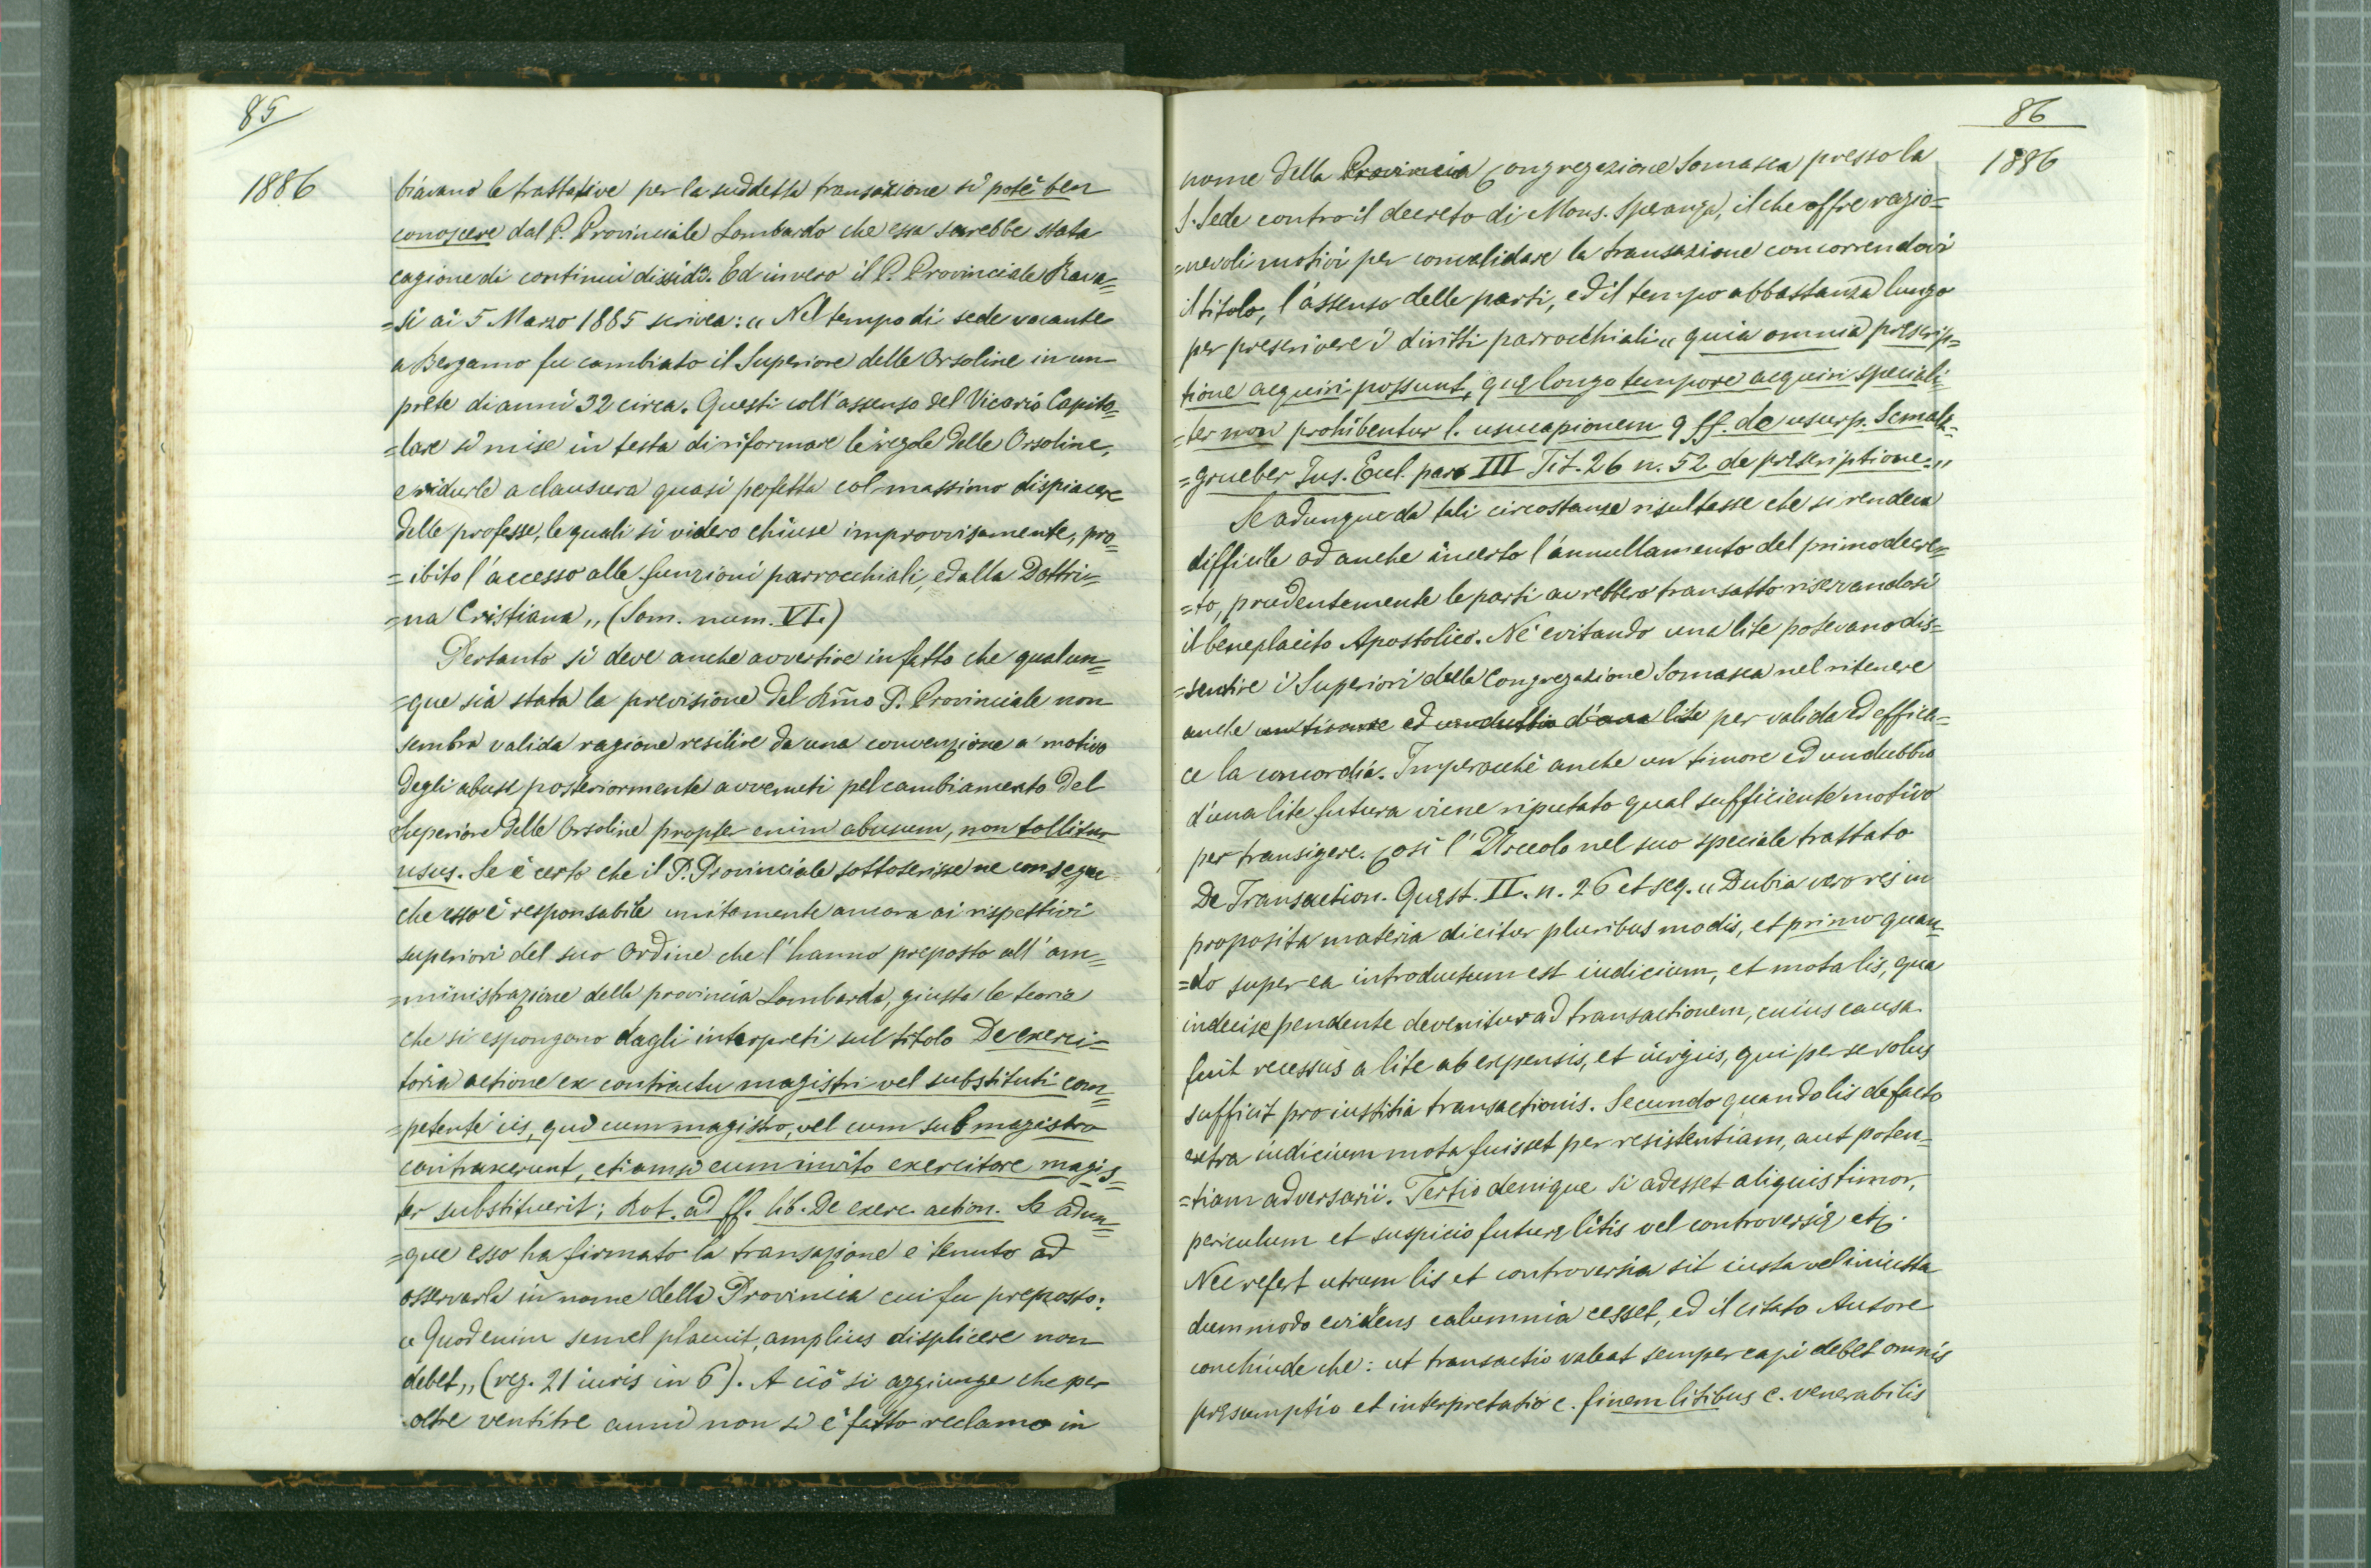 85
1886
biavano le trattative per la suddetta transazione si potè ben
conoscere dal P. Provinciale Lombardo che essa sarebbe stata
cagione di continui dissidî. Ed invero il P. Provinciale Rava=
=si ai 5 Marzo 1885 scrivea: „ Nel tempo di sede vacante
a Bergamo fu cambiato il Superiore delle Orsoline in un
prete di anni 32 circa. Questi coll'assenso del Vicario Capito=
=lare si mise in testa di riformare le regole delle Orsoline,
e ridurle a clausura quasi perfetta col massimo dispiacere
delle professe, le quali si videro chiuse improvvisamente, pro=
=ibito l'accesso alle funzioni parrocchiali, ed alla Dottri=
=na Cristiana „ (Som. num. VI.)
Pertanto si deve anche avvertire in fatto che qualun=
=que sia stata la previsione del Rm̃o P. Provinciale non
sembra valida ragione resilire da una convenzione a motivo
degli abusi posteriormente avvenuti pel cambiamento del
Superiore delle Orsoline propter enim abusum, non tollitur
usus. Se è certo che il P. Provinciale sottoscrisse ne consegue
che esso è responsabile unitamente ancora ai rispettivi
superiori del suo Ordine che l'hanno preposto all'am=
=ministrazione della provincia Lombarda, giusta le teorie
che si espongono dagli interpreti sul titolo De exerci=
toria actione ex contractu magistri vel substituti com=
=petente iis, qui cum magistro, vel cum submagistro
contraxerunt, etiamsi eum invito exercitore magis=
ter substituerit; Rot. ad ff. lib. De exerc. action. Se adun=
=que esso ha firmato la transazione è tenuto ad
osservarla in nome della Provincia cui fu preposto:
„ Quod enim semel placuit, amplius displicere non
debet „ (reg. 21 iuris in 6). A ciò si aggiunge che per
oltre ventitre anni non si è fatto reclamo in
86
1886
nome della Provincia Congregazione Somasca presso la
S. Sede contro il decreto di Mons. Speranza, il che offre ragio=
=nevoli motivi per convalidare la transazione concorrendovi
il titolo, l'assenso delle parti, ed il tempo abbastanza lungo
per prescrivere i diritti parrocchiali „ quia omnia præscrip=
tione acquiri possunt, quæ longo tempore acquiri speciali=
=ter non prohibentur l. usucapionem 9 ff. de usurp. Scmalz=
=grueber Jus. Eccl. pars III Tit. 26 n. 52 de præscriptione. „
Se adunque da tali circostanze risultasse che si rendeva
difficile ad anche incerto l'annullamento del primo decre=
=to, prudentemente le parti avrebbero transatto riservandosi
il beneplacito Apostolico. Nè evitando una lite potevano dis=
=sentire i Superiori della Congregazione Somasca nel ritenere
anche un timore ed un dubbio d'una lite per valida ed effica=
ce la concordia. Imperocchè anche un timore ed un dubbio
d'una lite futura viene riputato qual sufficiente motivo
per transigere. Così l'Urceolo nel suo speciale trattato
De Transaction. Quæst. II. n. 26 et seq. „ Dubia vero res in
proposita materia dicitur pluribus modis, et primo quan=
=do super ea introductum est iudicium, et mota lis, qua
indecise pendente devenitur ad transactionem, cuius causa
fuit recessus a lite ab expensis, et iurgiis, qui per se solus
sufficit pro iustitia transactionis. Secundo quando lis de facto
extra iudicium mota fuisset per resistentiam, aut poten=
=tiam adversarii. Tertio denique si adesset aliquis timor,
periculum et suspicio futuræ litis vel controversiæ etc.
Nec refert utrum lis et controversia sit iusta vel iniusta
dummodo evidens calumnia cesset, ed il citato Autore
conchiude che: ut transactio valeat semper capi debet omnis
præsumptio et interpretatio c. finem litibus c. venerabilis